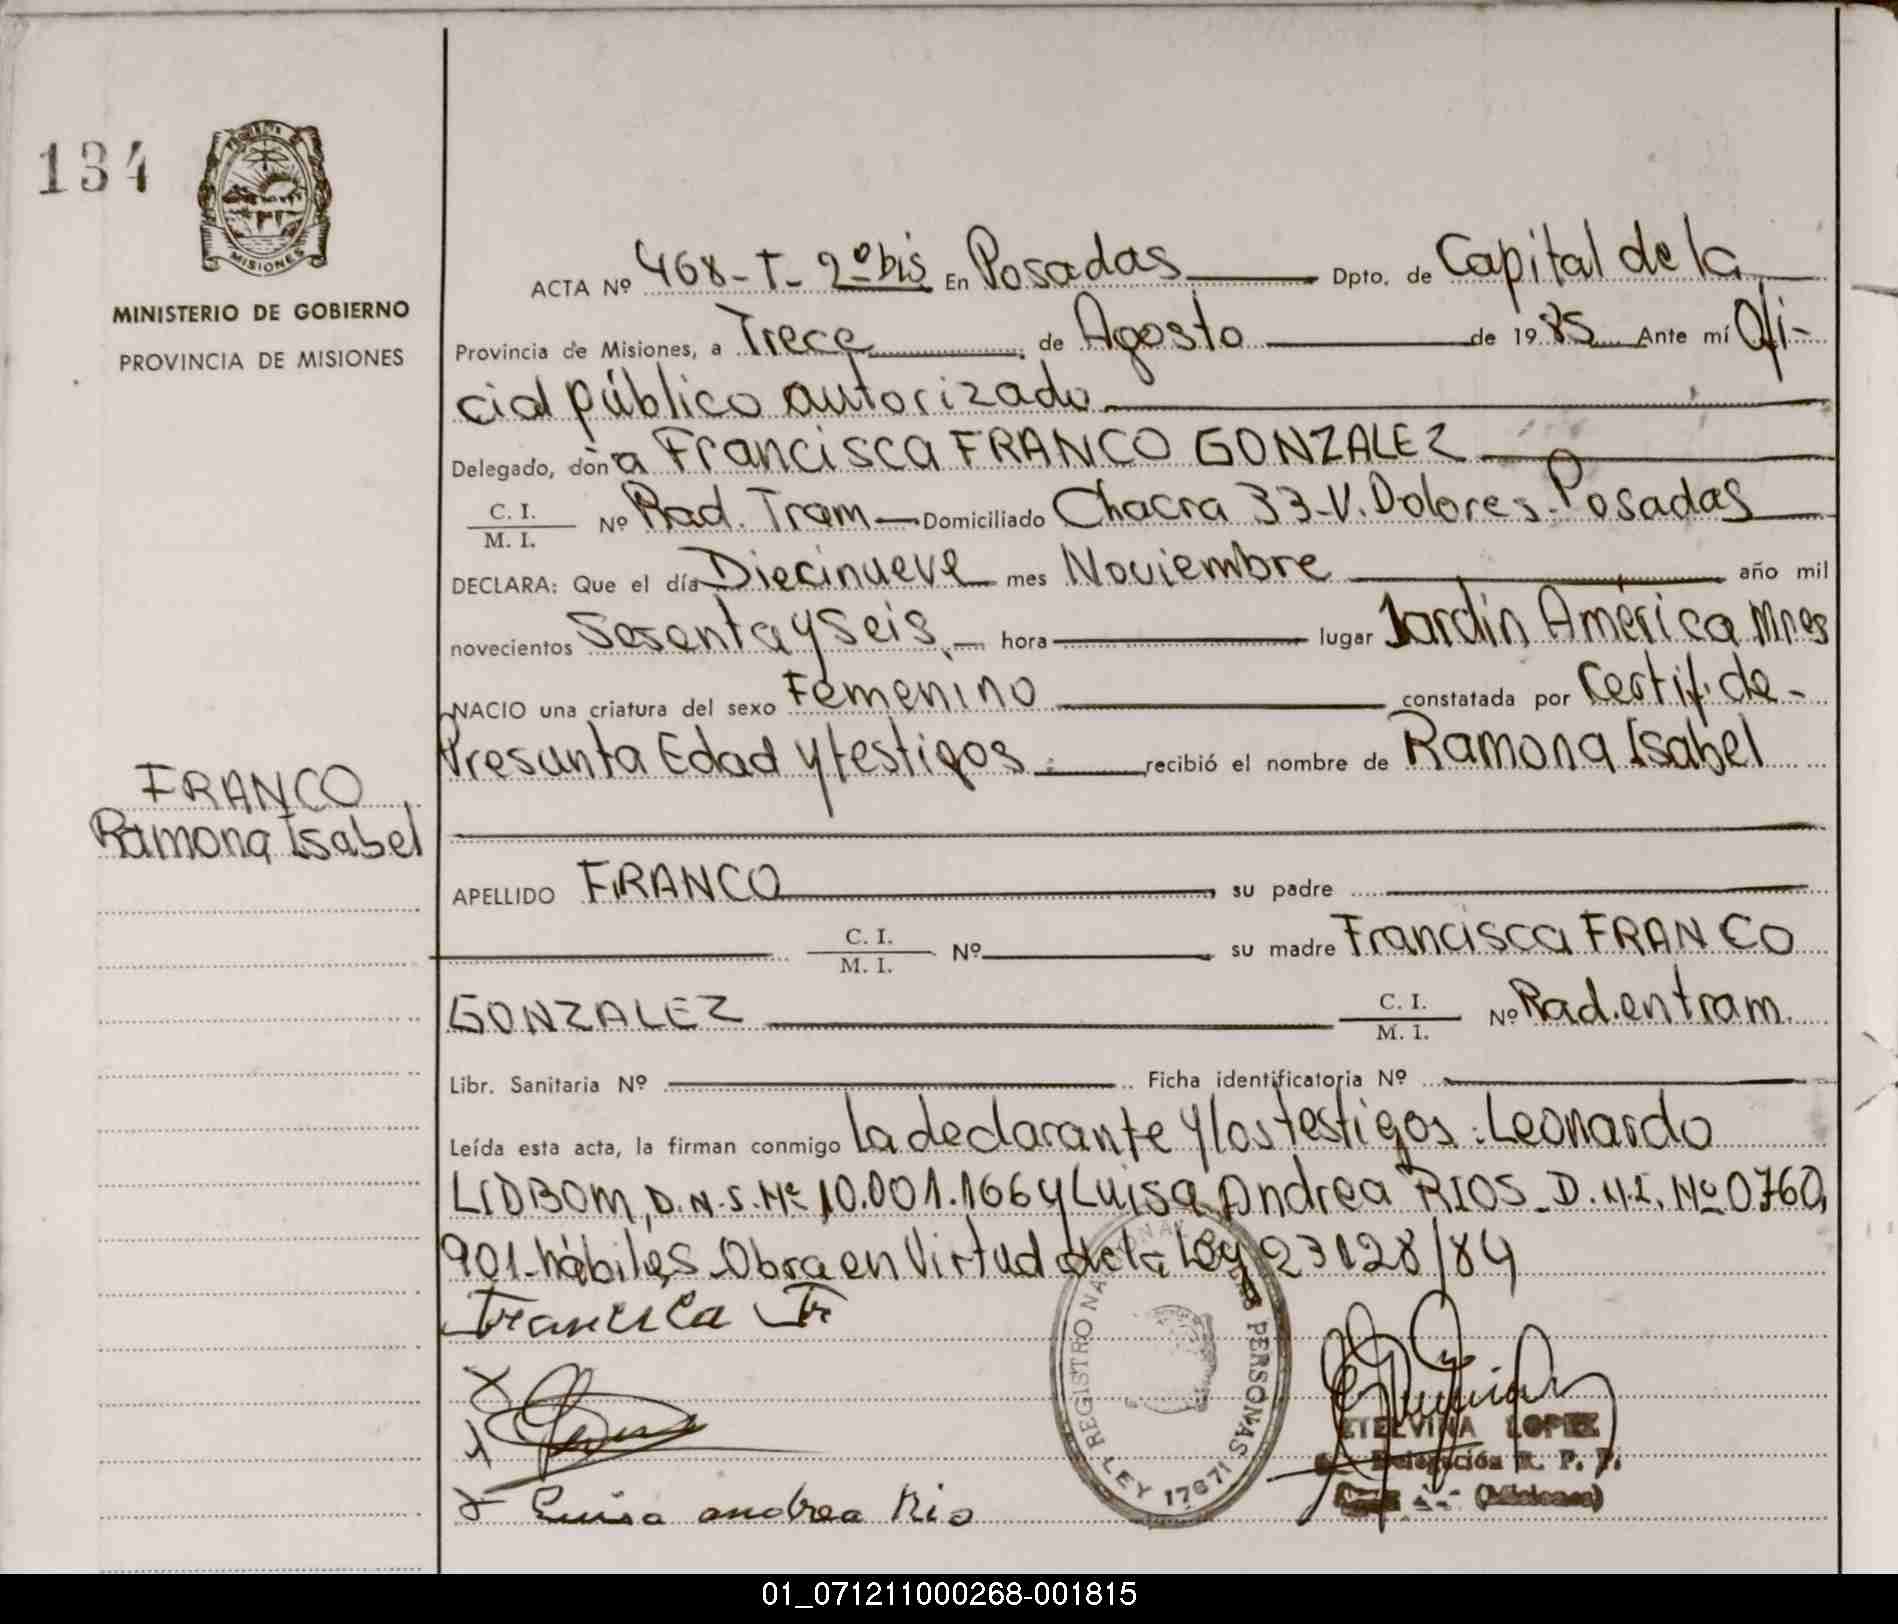 134
MISIONES
MINISTERIO DE GOBIERNO
PROVINCIA DE MISIONES
ACTA Nº 468-T-2º bis En Posadas Dpto. de Capital de la
Provincia de Misiones, a Trece de Agosto de 1985 Ante mí Ofi-
cial público autorizado
Delegado, don a Francisca FRANCO GONZALEZ
C. I.
M. I.
Nº Rad. Tram Domiciliado Chacra 33-V. Dolores-Posadas
DECLARA: Que el día Diecinueve mes Noviembre año mil
novecientos Sesenta y Seis hora lugar Jardín América Mnes
NACIO una criatura del sexo Femenino constatada por Certif. de-
Presunta Edad y testigos recibió el nombre de Ramona Isabel
FRANCO
Ramona Isabel
APELLIDO FRANCO, su padre
C. I.
M. I.
Nº su madre Francisca FRANCO
GONZALEZ
C. I.
M. I.
Nº Rad. en tram.
Libr. Sanitaria Nº Ficha identificatoria Nº
Leída esta acta, la firman conmigo la declarante y los testigos: Leonardo
LIDBOM, D.N.I. Nº 10.001.166 y Luisa Andrea RIOS_D.N.I. Nº 0760,
901-hábiles-Obra en Virtud de la Ley 23128/84
Francisca Fr
x
x
x Luisa andrea Rio
REGISTRO NACIONAL DE LAS PERSONAS
LEY 17671
ETELVINA LOPEZ
Delegación R. P. P.
(Misiones)
01_071211000268-001815